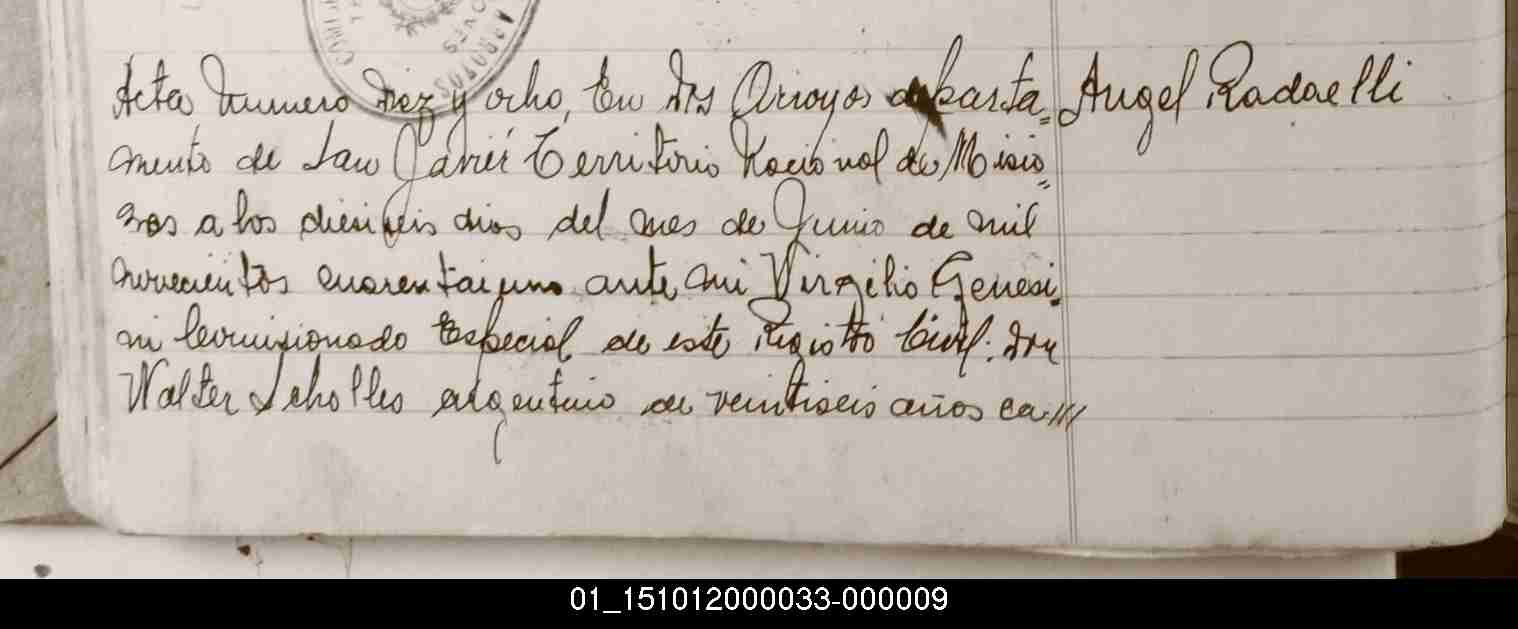 Acta Numero Diez y ocho, En Dos Arroyos departa= Angel Radaelli
mento de San Javier Territorio Nacional de Misio=
nes a los dieciseis dias del mes de Junio de mil
novecientos cuarentaiuno ante mi Virgilio Genesi=
ni Comisionado Especial de este Registro Civil: Don
Walter Scholles argentino de veintiseis años ca///
01_151012000033-000009